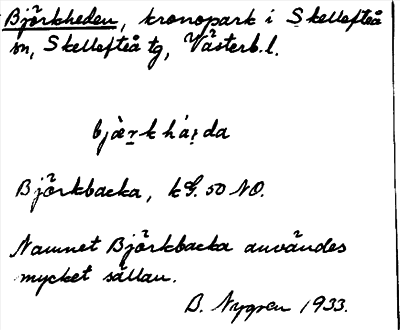 Björkheden, kronopark i Skellefteå
sn, Skellefteå tg, Västerb.l.
Björkbacka, 50 NO.
Namnet Björkbacka användes
mycket sällan.
B. Nygren 1933.